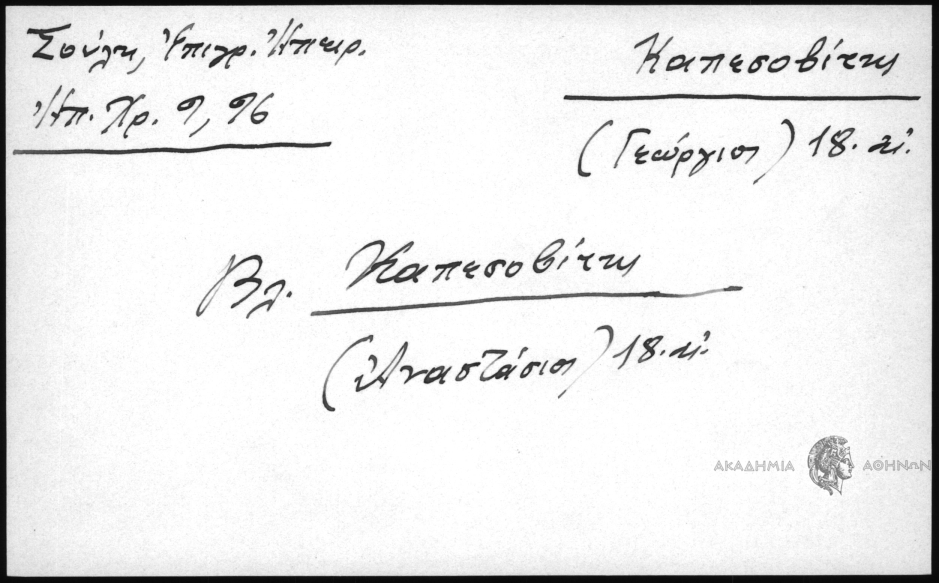 Σούλη, Ἐπιγρ. Ἠπειρ.
Ἠπ. Χρ. 9, 96
Καπεσοβίτης
(Γεώργιος) 18. αἰ.
Βλ. Καπεσοβίτης
(Ἀναστάσιος) 18. αἰ.
ΑΚΑΔΗΜΙΑ ΑΘΗΝΩΝ